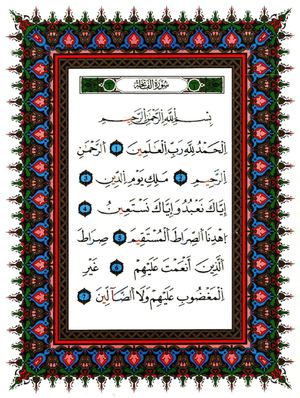 سُورَةُ الفَاتِحَة
بِسْمِ اللَّهِ الرَّحْمَٰنِ الرَّحِيمِ
الْحَمْدُ لِلَّهِ رَبِّ الْعَٰلَمِينَ 1 الرَّحْمَٰنِ
الرَّحِيمِ 2 مَٰلِكِ يَوْمِ الدِّينِ 3
إِيَّاكَ نَعْبُدُ وَإِيَّاكَ نَسْتَعِينُ 4
اهْدِنَا الصِّرَاطَ الْمُسْتَقِيمَ 5 صِرَاطَ
الَّذِينَ أَنْعَمْتَ عَلَيْهِمْ 6 غَيْرِ
الْمَغْضُوبِ عَلَيْهِمْ وَلَا الضَّآلِّينَ 7